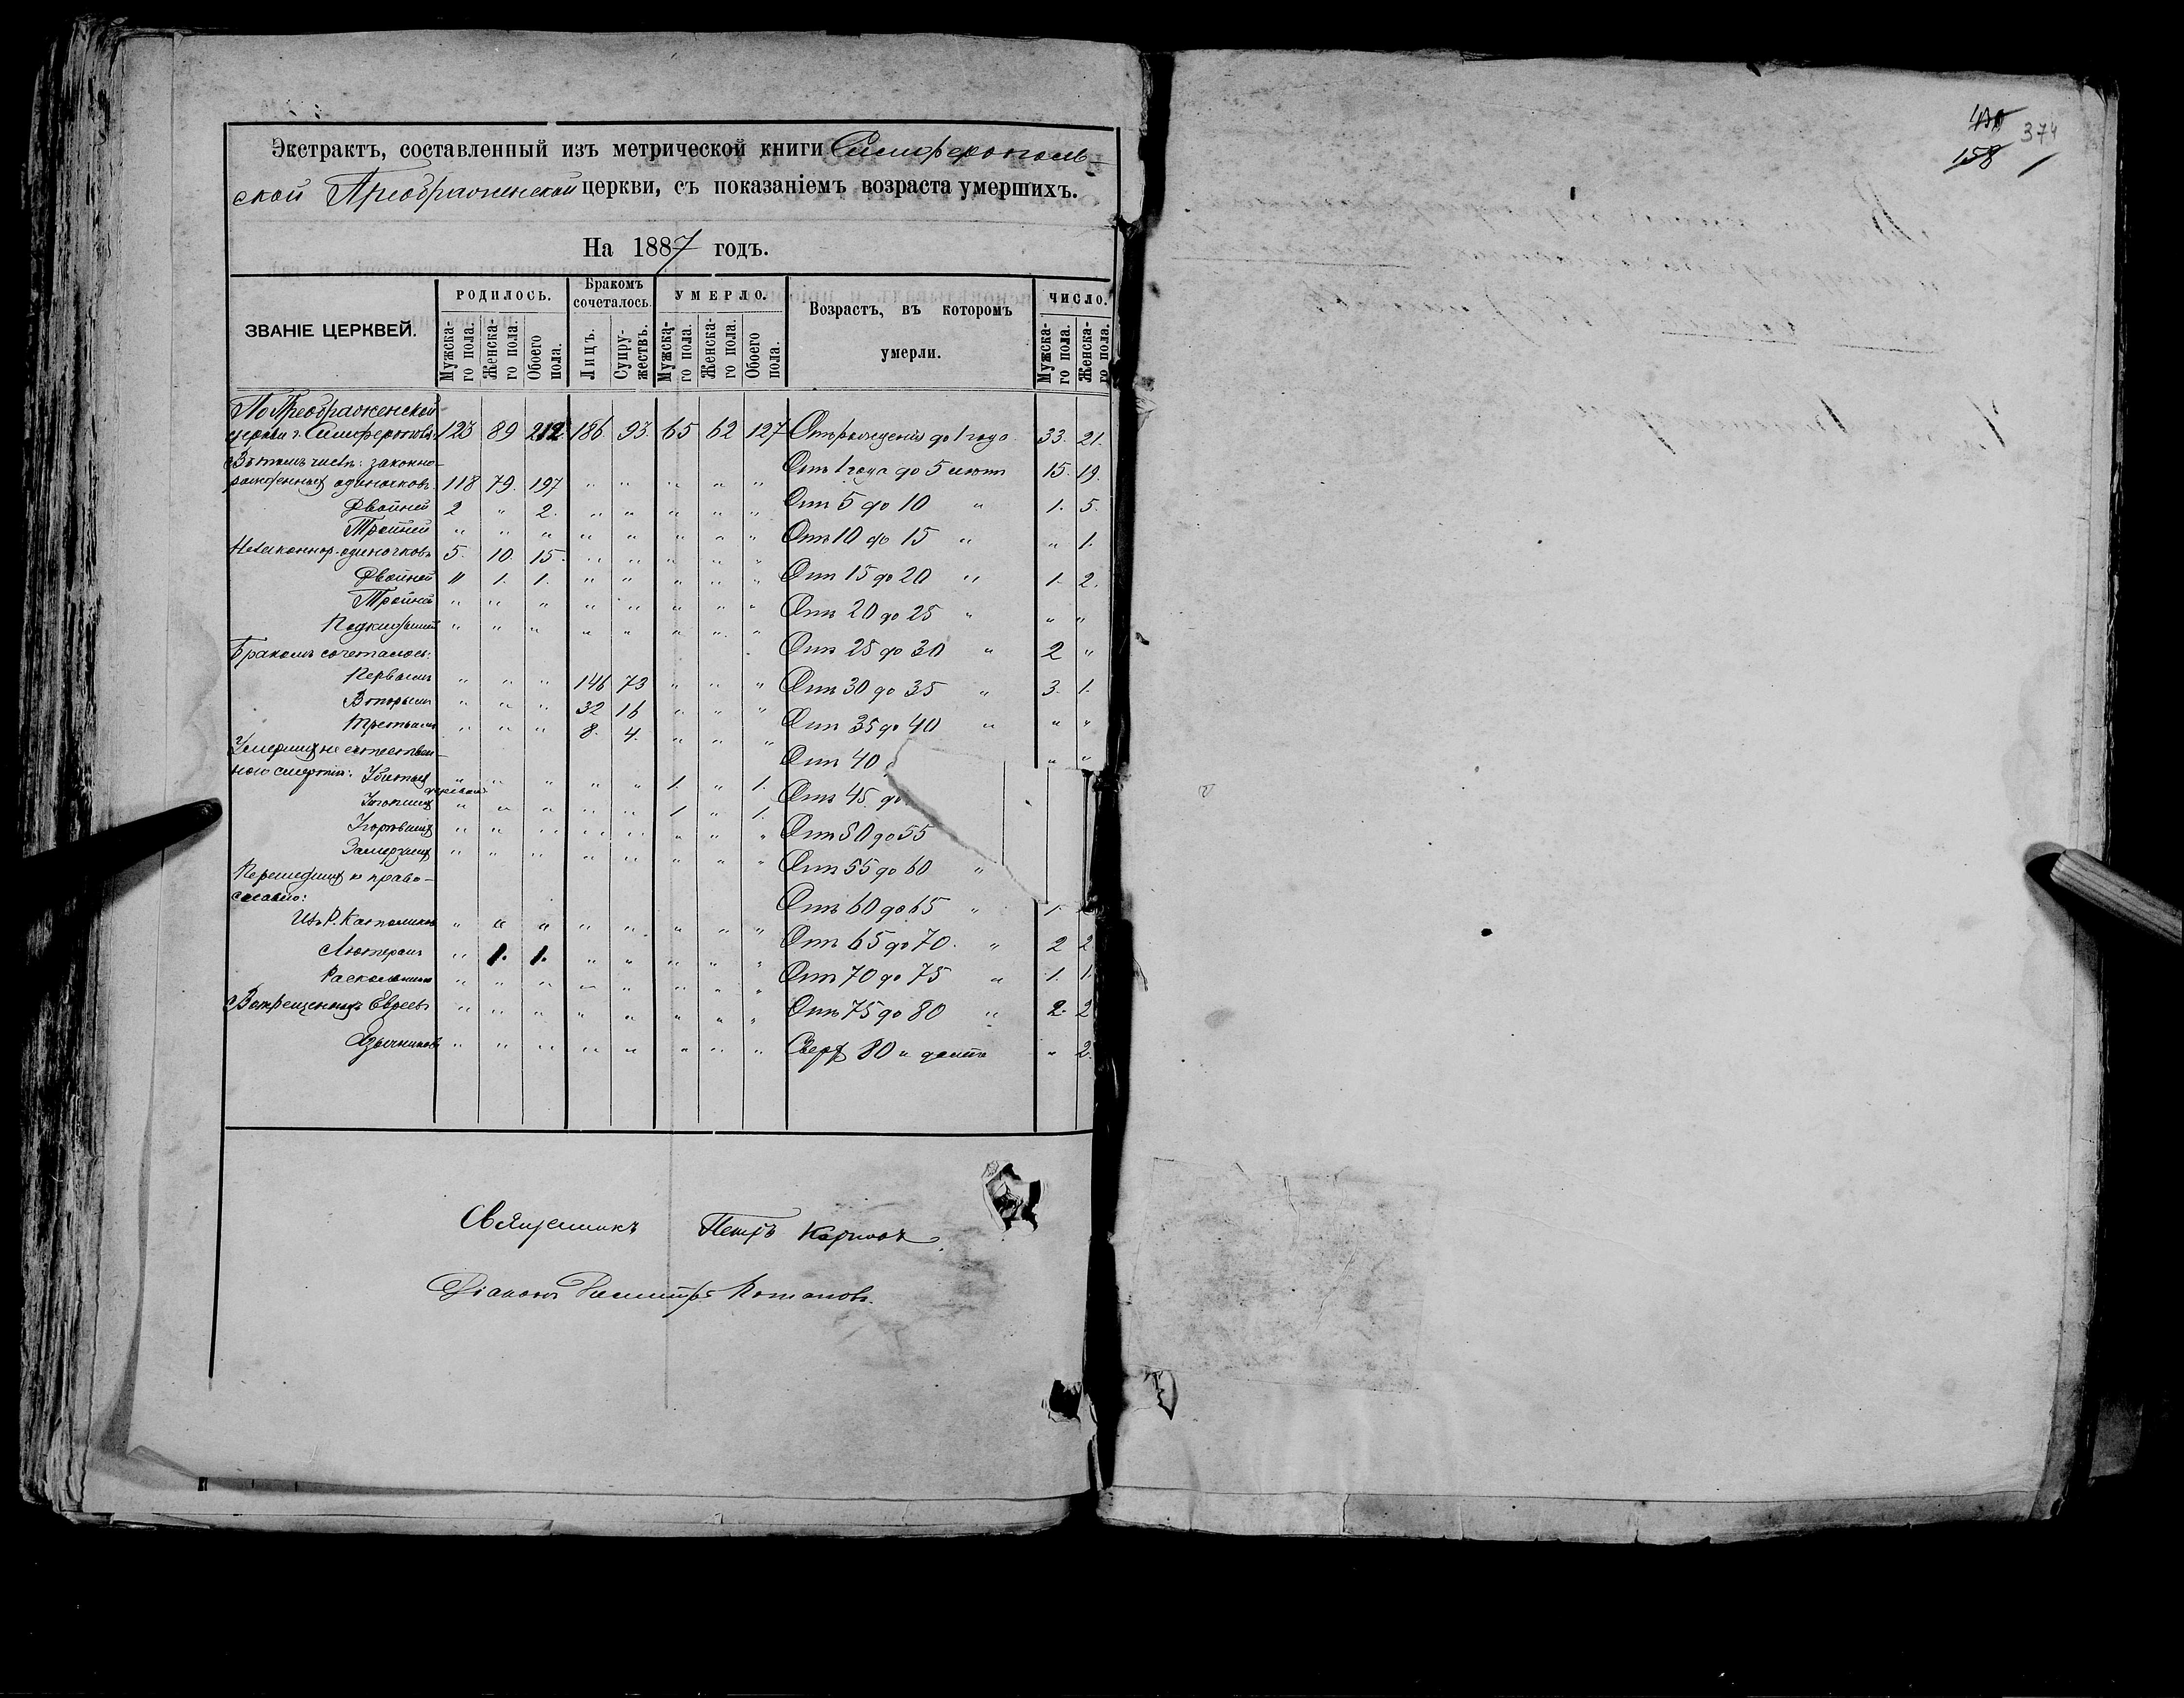 Экстрактъ, составленный изъ метрической книги Симферополь-
ской Преображенской церкви, съ показаніемъ возраста умершихъ.
На 1887 годъ.
ЗВАНІЕ ЦЕРКВЕЙ. РОДИЛОСЬ. Бракомъ сочеталось. УМЕРЛО. Возрастъ, въ которомъ умерли. ЧИСЛО.
Мужска-го пола. Женска-го пола. Обоего пола. Лицъ. Супру-жествъ. Мужска-го пола. Женска-го пола. Обоего пола. Мужска-го пола. Женска-го пола.
По Преображенской
церкви г. Симферополя 123 89 212 186 93 65 62 127 Отъ рожденія до 1 года 33. 21.
Въ томъ числѣ: законно-
рожденныхъ одиночковъ 118 79. 197 " " " " " Отъ 1 года до 5 лѣтъ 15. 19.
Двойней 2 " 2. " " " " " Отъ 5 до 10 " 1. 5.
Тройней " " " " " " " " Отъ 10 до 15 " " 1.
Незаконнор. одиночковъ 5. 10. 15. " " " " " Отъ 15 до 20 " 1. 2.
Двойней " 1. 1. " " " " "
Тройней " " " " " " " " Отъ 20 до 25 " " "
Подкидышей " " " " " " " "
Бракомъ сочеталось: Отъ 25 до 30 " 2 "
Первымъ " " " 146 73 " " " Отъ 30 до 35 " 3. 1.
Вторымъ " " " 32 16 " " "
Третьимъ " " " 8. 4. " " " Отъ 35 до 40 " " "
Умершихъ не естествен-
ною смертію: Убитыхъ " " " " " 1. " 1. Отъ 40 " "
Утопшихъ " " " " " 1 " 1. Отъ 45. до
Угорѣвшихъ " " " " " " " " Отъ 50 до 55
Замерзшихъ " " " " " " " "
Перешедшихъ въ право- Отъ 55 до 60 "
славіе: Отъ 60 до 65 " 1.
Изъ Р. Католиковъ " " " " " " " " Отъ 65 до 70. " 2 2
Лютеранъ " 1. 1. " " " " "
Раскольниковъ " " " " " " " " Отъ 70 до 75 " 1. 1.
Воскрещенныхъ Евреевъ " " " " " " " " Отъ 75 до 80 " 2. 2
Язычниковъ " " " " " " " " Сверхъ 80 и далѣе " 2.
Священникъ Петръ
Діаконъ Димитрій
374
158